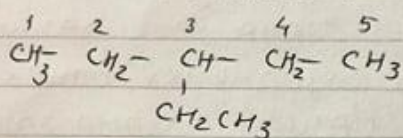 1 2 3 4 5
CH3- CH2- CH- CH2- CH3
CH2CH3